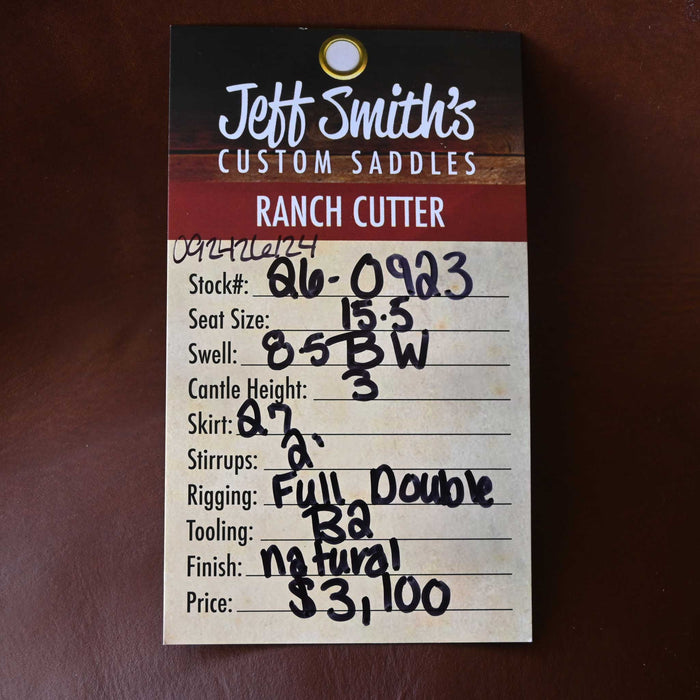 Jeff Smith's
CUSTOM SADDLES
RANCH CUTTER
092426124
Stock#: 26-0923
Seat Size: 15.5
Swell: 8.5 BW
Cantle Height: 3
Skirt: 27
Stirrups: 2"
Rigging: Full Double
Tooling: B2
Finish: natural
Price: $3,100